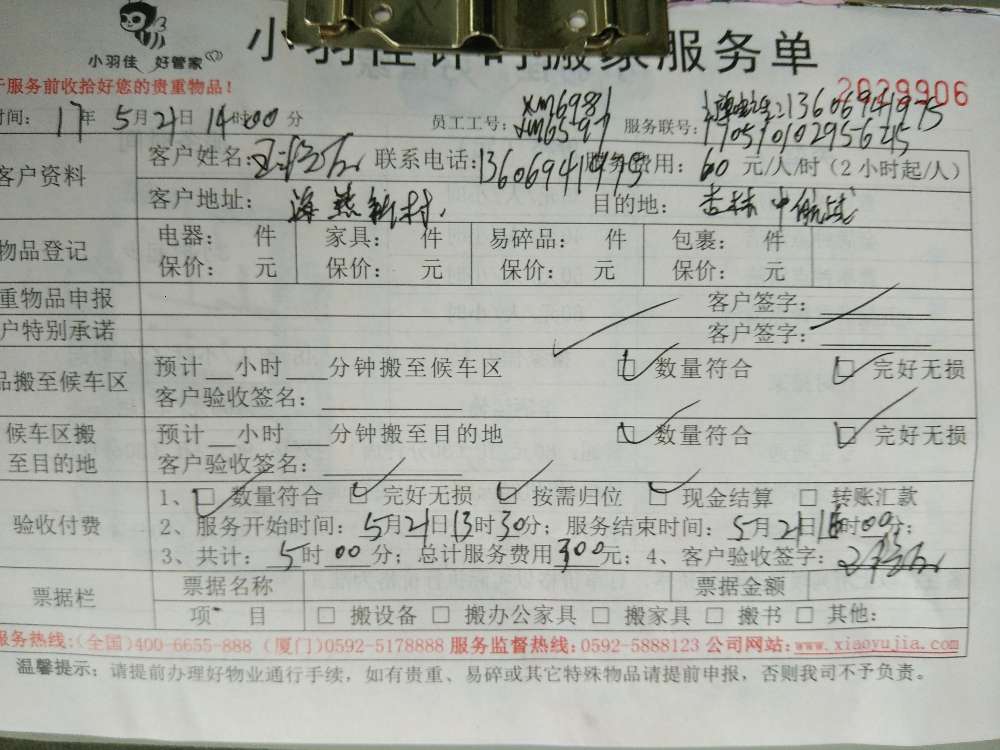 小羽佳 好管家
小羽佳计时搬家服务单
于服务前收拾好您的贵重物品！
2029906
时间：17年5月21日14时00分 员工工号：XM6981 服务联号：13606941975
XM6597 1905910102956245
客户资料 客户姓名： 联系电话：13606941975 服务费用：60元/人/时（2小时起/人）
客户地址：海燕新村 目的地：杏林中航城
物品登记 电器： 件 家具： 件 易碎品： 件 包裹： 件
保价： 元 保价： 元 保价： 元 保价： 元
重物品申报 客户签字：
户特别承诺 客户签字：
品搬至候车区 预计 小时 分钟搬至候车区 □数量符合 □完好无损
客户验收签名：
候车区搬至目的地 预计 小时 分钟搬至目的地 □数量符合 □完好无损
客户验收签名：
验收付费 1、□数量符合 □完好无损 □按需归位 □现金结算 □转账汇款
2、服务开始时间：5月21日13时30分；服务结束时间：5月21日18时00分；
3、共计：5时00分；总计服务费用300元；4、客户验收签字：
票据栏 票据名称 票据金额
项 目 □搬设备 □搬办公家具 □搬家具 □搬书 □其他：
服务热线：(全国)400-6655-888 (厦门)0592-5178888 服务监督热线：0592-5888123 公司网站：www.xiaoyujia.com
温馨提示：请提前办理好物业通行手续，如有贵重、易碎或其它特殊物品请提前申报，否则我司不予负责。